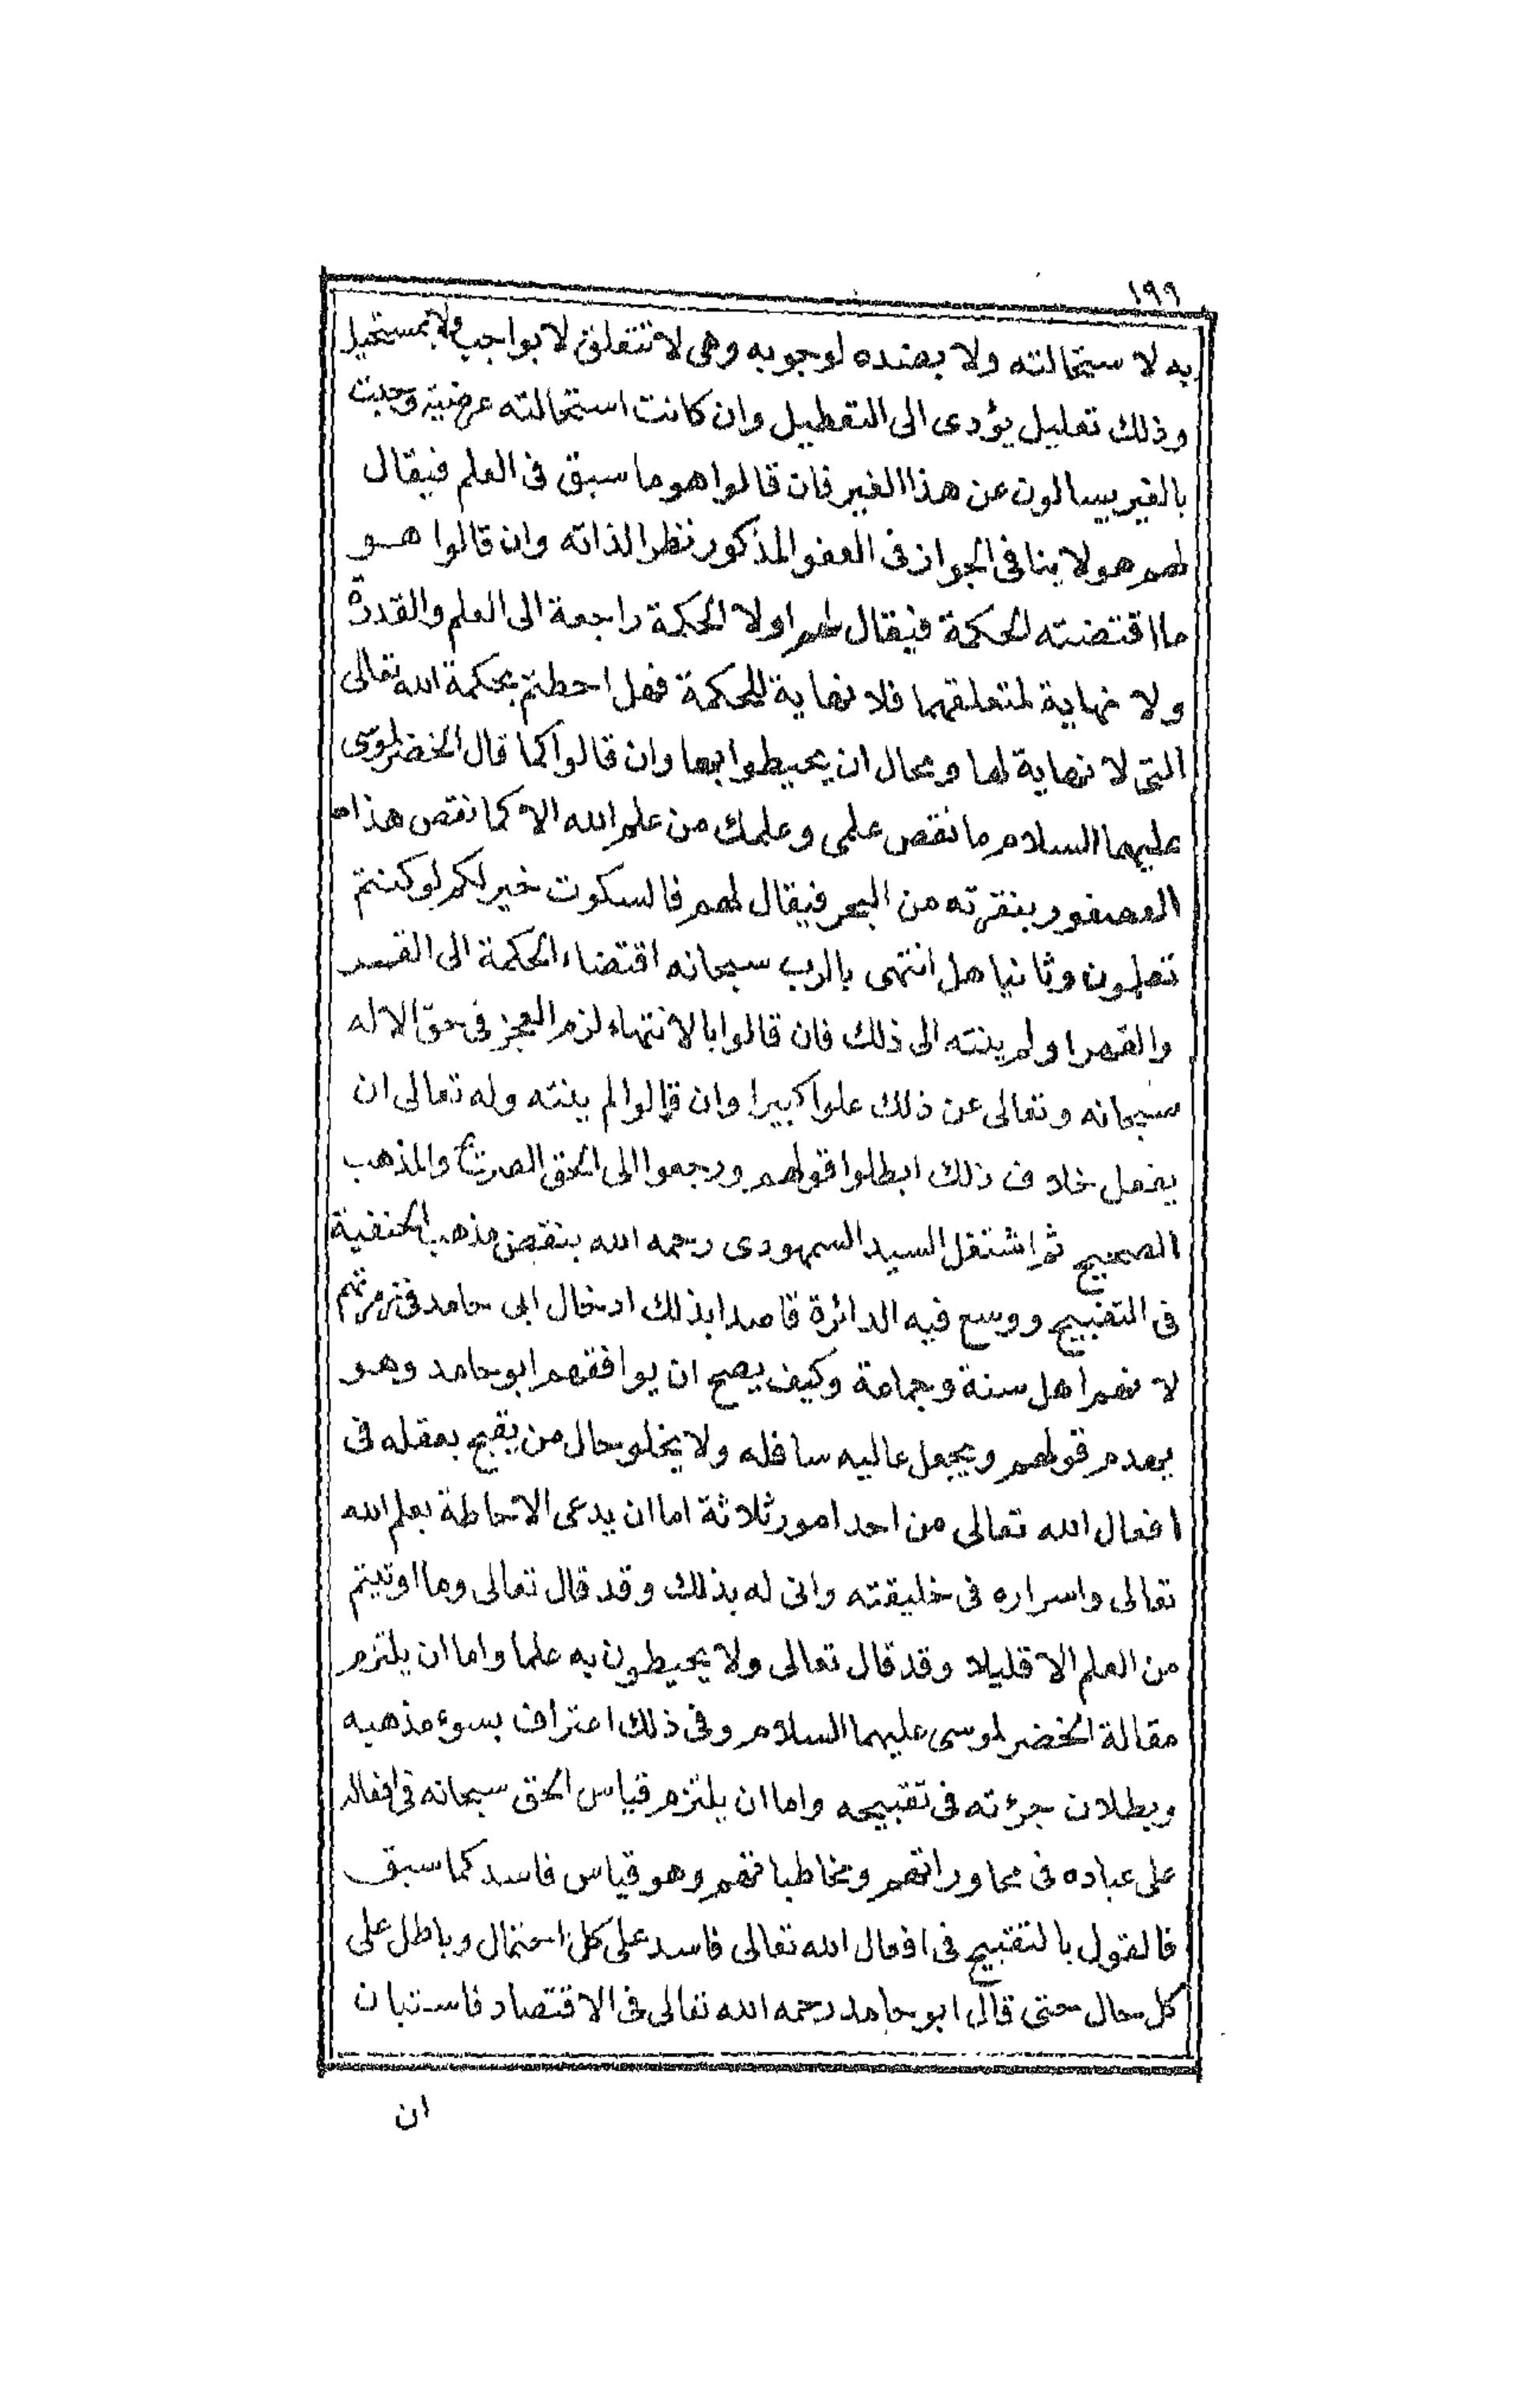 ١٩٩
به لا ستحالته ولا بضده لوجوبه وهى لا تتعلق لا بواجب ولا بمستحيل
وذلك تعليل يؤدى الى التعطيل وان كانت استحالته عرضية وجبت
بالغير يسالون عن هذا الغير فان قالوا هو ما سبق فى العلم فيقال
لهم هو لا ينافى الجواز فى العفو المذكور نظرا لذاته وان قالوا هو
ما اقتضته الحكمة فيقال لهم اولا الحكمة راجعة الى العلم والقدرة
ولا نهاية لمتعلقهما فلا نهاية للحكمة فهل احطتم بحكمة الله تعالى
التى لا نهاية لها ومحال ان يحيطوا بها وان قالوا كما قال الخضر لموسى
عليهما السلام ما نقص علمى وعلمك من علم الله الا كما نقص هذا
العصفور بنقرته من البحر فيقال لهم فالسكوت خير لكم لو كنتم
تعلمون وثانيا هل انتهى بالرب سبحانه اقتضاء الحكمة الى القسر
والقهر او لم ينته الى ذلك فان قالوا بالانتهاء لزم العجز فى حق الاله
سبحانه وتعالى عن ذلك علوا كبيرا وان قالوا لم ينته وله تعالى ان
يفعل خلاف ذلك ابطلوا قولهم ورجعوا الى الحق الصريح والمذهب
الصحيح ثم اشتغل السيد السمهودى رحمه الله بنقض مذهب الحنفية
فى التقبيح ووسع فيه الدائرة قاصدا بذلك ادخال ابى حامد فى زمرتهم
لانهم اهل سنة وجماعة وكيف يصح ان يوافقهم ابو حامد وهو
يهدم قولهم ويجعل عاليه سافله ولا يخلو حال من يقبح بعقله فى
افعال الله تعالى من احد امور ثلاثة اما ان يدعى الاحاطة بعلم الله
تعالى واسراره فى خليقته وانى له بذلك وقد قال تعالى وما اوتيتم
من العلم الا قليلا وقد قال تعالى ولا يحيطون به علما واما ان يلتزم
مقالة الخضر لموسى عليهما السلام وفى ذلك اعتراف بسوء مذهبه
وبطلان جرءته فى تقبيحه واما ان يلتزم قياس الحق سبحانه فى افعاله
على عباده فى محاوراتهم ومخاطباتهم وهو قياس فاسد كما سبق
فالقول بالتقبيح فى افعال الله تعالى فاسد على كل احتمال وباطل على
كل حال حتى قال ابو حامد رحمه الله تعالى فى الاقتصاد فاستبان
ان